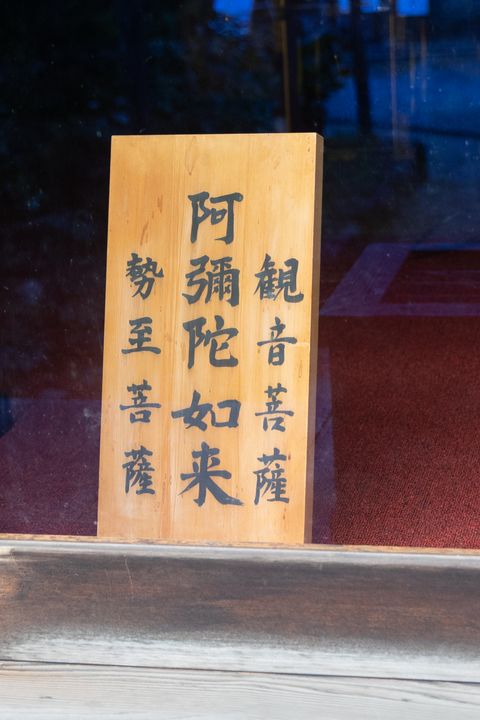 観音菩薩
阿彌陀如来
勢至菩薩